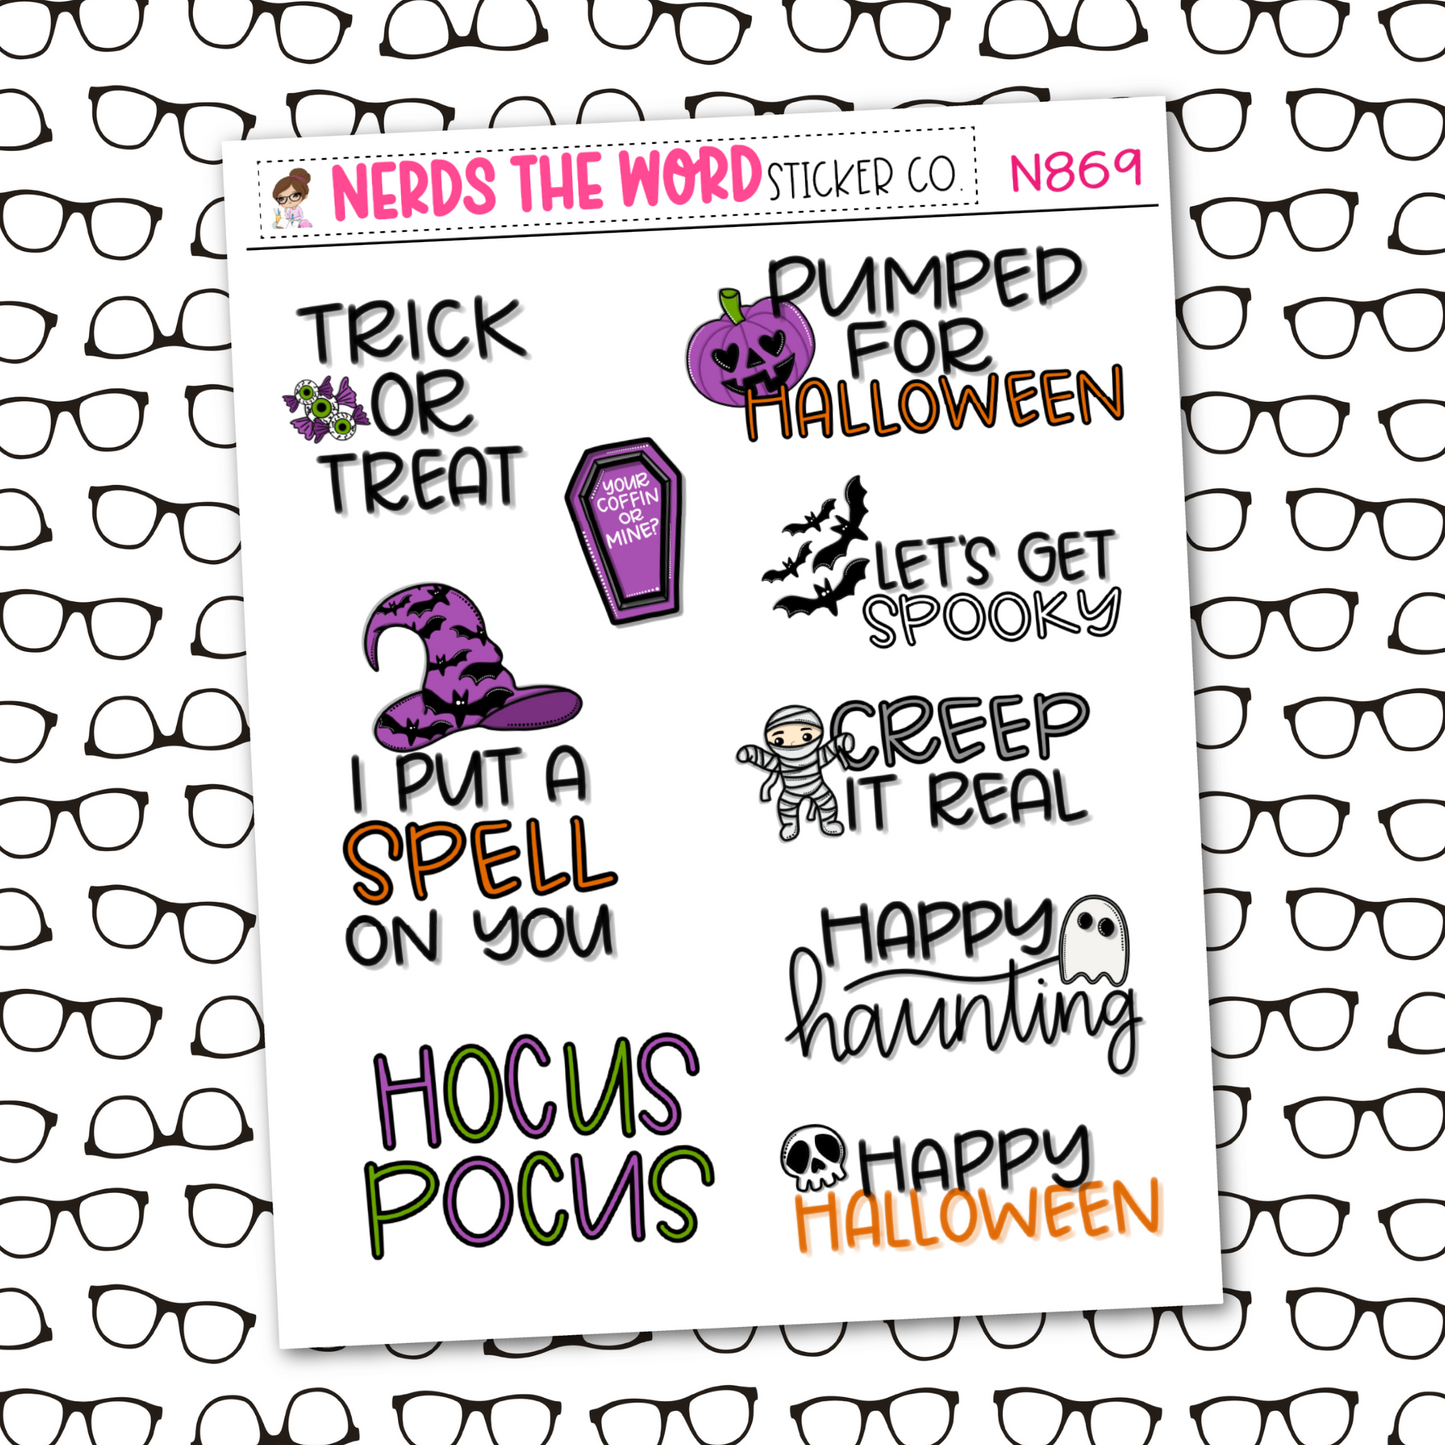 NERDS THE WORD STICKER CO.
N869
TRICK
OR
TREAT
PUMPED
FOR
HALLOWEEN
YOUR
COFFIN
OR
MINE?
LET'S GET
SPOOKY
I PUT A
SPELL
ON YOU
CREEP
IT REAL
HAPPY
haunting
HOCUS
POCUS
HAPPY
HALLOWEEN